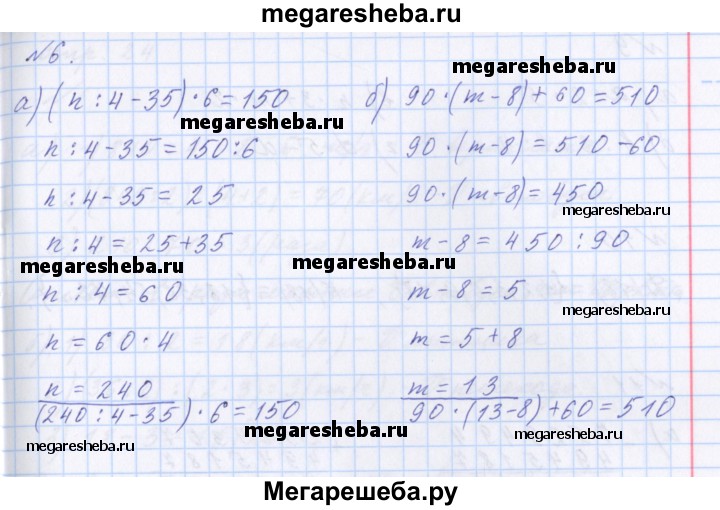 megaresheba.ru
№6.
а) (n : 4 - 35) · 6 = 150
megaresheba.ru
n : 4 - 35 = 150 : 6
n : 4 - 35 = 25
n : 4 = 25 + 35
megaresheba.ru
n : 4 = 60
n = 60 · 4
n = 240
(240 : 4 - 35) · 6 = 150
megaresheba.ru
б) 90 · (m - 8) + 60 = 510
90 · (m - 8) = 510 - 60
90 · (m - 8) = 450
megaresheba.ru
m - 8 = 450 : 90
megaresheba.ru
m - 8 = 5
megaresheba.ru
m = 5 + 8
m = 13
90 · (13 - 8) + 60 = 510
megaresheba.ru
megaresheba.ru
Мегарешеба.ру